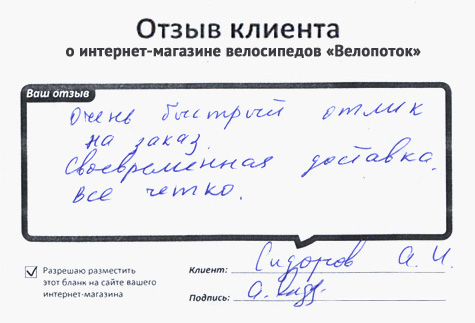 Отзыв клиента
о интернет-магазине велосипедов «Велопоток»
Ваш отзыв
Очень быстрый отлик
на заказ.
Своевременная доставка.
все четко.
Разрешаю разместить
этот бланк на сайте вашего
интернет-магазина
Клиент: Сидоров А. И.
Подпись: